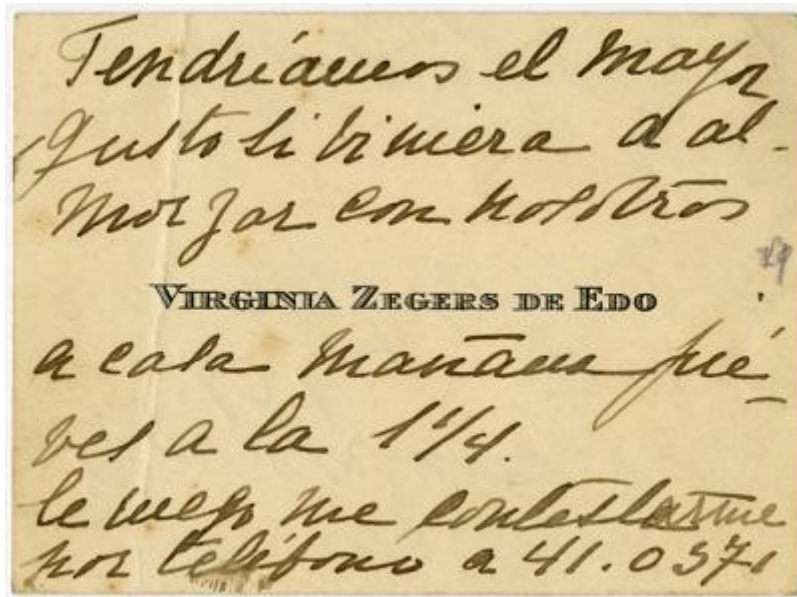 Tendríamos el mayor
gusto si viniera a al-
morzar con nosotros
VIRGINIA ZEGERS DE EDO
a casa mañana jue-
ves a la 1 1/4.
le ruego me contestarme
por teléfono a 41.0371